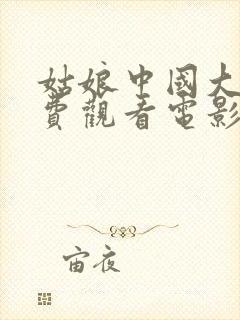 姑娘中國大
費觀看電影
宙夜